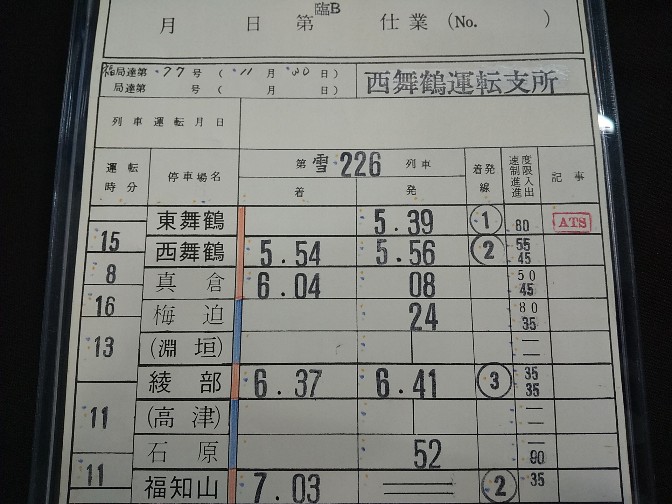 臨B
月 日 第 仕 業 (No. )
福局達第 77 号 ( 11 月 30 日 )
局達第 号 ( 月 日 )
西舞鶴運転支所
列車運転月日
運転時分 停車場名 第 雪226 列車 着発線 速度制限 進入 進出 記事
着 発
東舞鶴 5.39 ① 80 ATS
15
西舞鶴 5.54 5.56 ② 55 45
8
真倉 6.04 08 50 45
16
梅迫 24 80 35
13
(淵垣)
綾部 6.37 6.41 ③ 35 35
(高津)
11
石原 52 90
11
福知山 7.03 ② 35